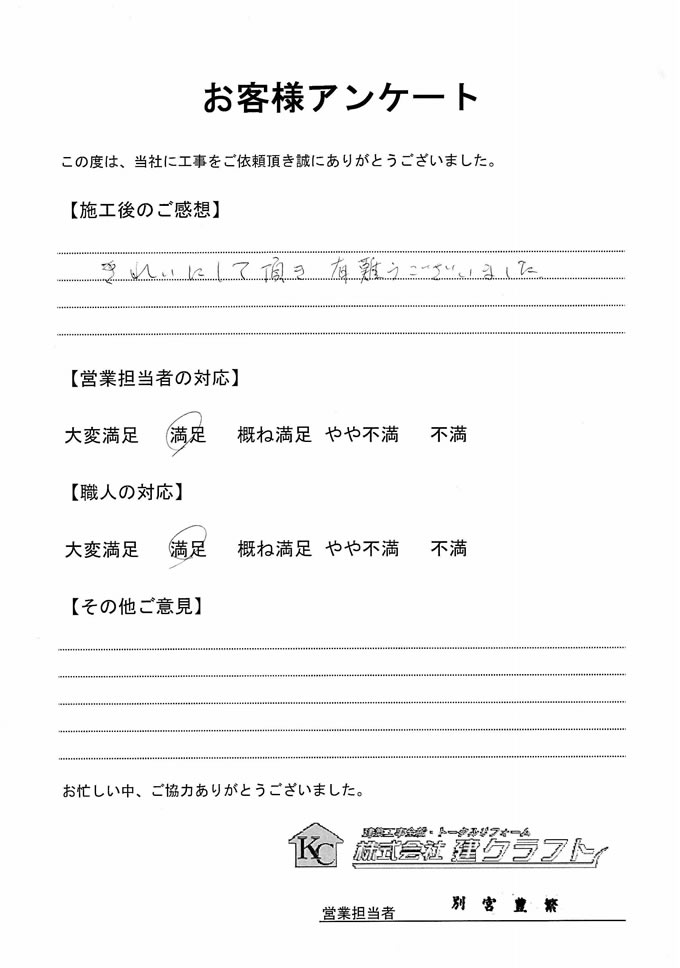 お客様アンケート
この度は、当社に工事をご依頼頂き誠にありがとうございました。
【施工後のご感想】
きれいにして頂き 有難うございました
【営業担当者の対応】
大変満足 満足 概ね満足 やや不満 不満
【職人の対応】
大変満足 満足 概ね満足 やや不満 不満
【その他ご意見】
お忙しい中、ご協力ありがとうございました。
KC
建築工事全般・トータルリフォーム
株式会社 建クラフト
営業担当者 別宮豊繁